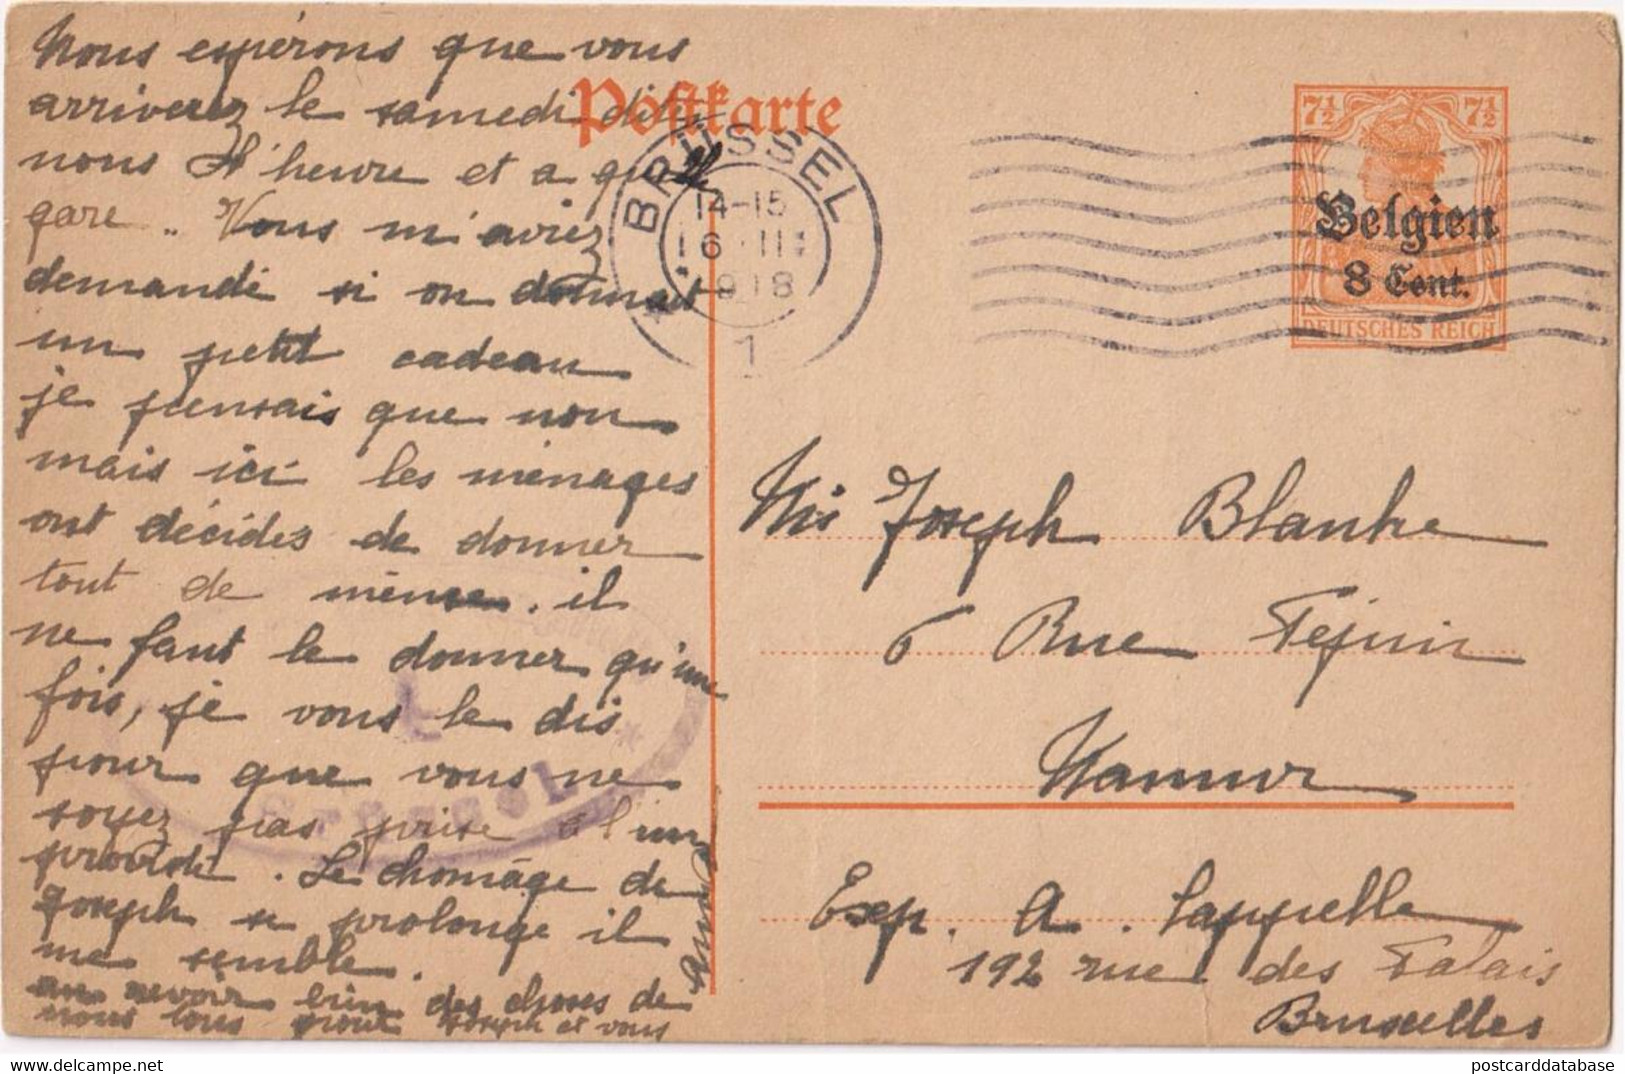 Nous espérons que vous
arriverez le samedi dites
nous l'heure et a quelle
gare .. Vous m'aviez
demandé si on donnait
un petit cadeau
je pensais que non
mais ici les ménages
ont décidés de donner
tout de même. il
ne faut le donner qu'une
fois, je vous le dis
pour que vous ne
soyez pas prise à l'im
proviste. Le chomage de
Joseph se prolonge il
me semble.
au revoir bien des choses de
nous tous pour Joseph et vous
Postkarte
BRÜSSEL
14-15
16 · II
1918
1
7½ 7½
Belgien
8 Cent.
DEUTSCHES REICH
Joseph Blanke
6 Rue Pépin
Namur
Exp. A. Cappelle
192 rue des Palais
Bruxelles
Brüssel
postcarddatabase